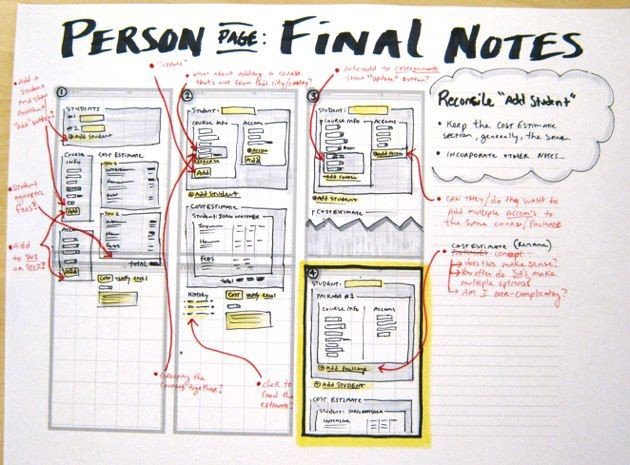 PERSON PAGE: FINAL NOTES
"update"
What about adding a course
that's not from this city/center?
Auto-add to
show "update" button?
• Add a
Student
and
Another
"Add" button?
• Student
specific
Fees?
• Add
to Stu1
or Stu2?
1
STUDENTS
#1
#2
⊕ Add Student
Course
Info
Add
Accom
Add
COST ESTIMATE
Stu 1
Stu 2
TOTAL
COST
Verify Email
2
Student:
Course Info
Accom
⊕ Accom
Add
⊕ Course
Add
⊕ Add STUDENT
COST ESTIMATE
Student: John Whitmer
FEES
Total
History
COST
Verify Email
• Grouping the
Courses together?
• click to
load the
estimate?
3
STUDENT:
COURSE INFO
Accoms
⊕ Add Accom
⊕ Add course
⊕ Add STUDENT
COST ESTIMATE
4
STUDENT:
PACKAGE #1
COURSE INFO
Accoms
⊕ Add Package
⊕ Add STUDENT
COST ESTIMATE
Student:
Reconsile "Add Student"
• Keep the Cost Estimate
section, generally, the same.
• INCORPORATE OTHER NOTES...
• CAN THEY/do they want to
Add multiple Accom's to
the same course/package
COST ESTIMATE (rename)
concept
Does this make sense?
How often do SA's make
multiple options?
Am I over-complicating?